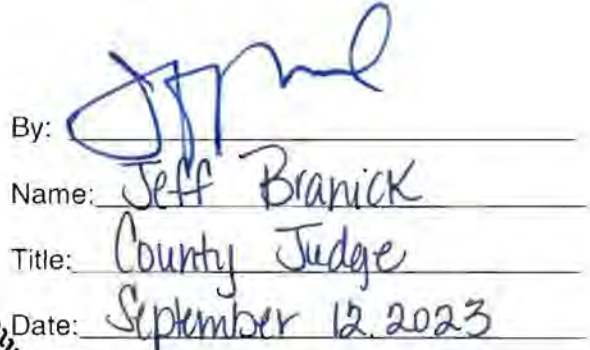 By:
Name: Jeff Branick
Title: County Judge
Date: September 12.2023